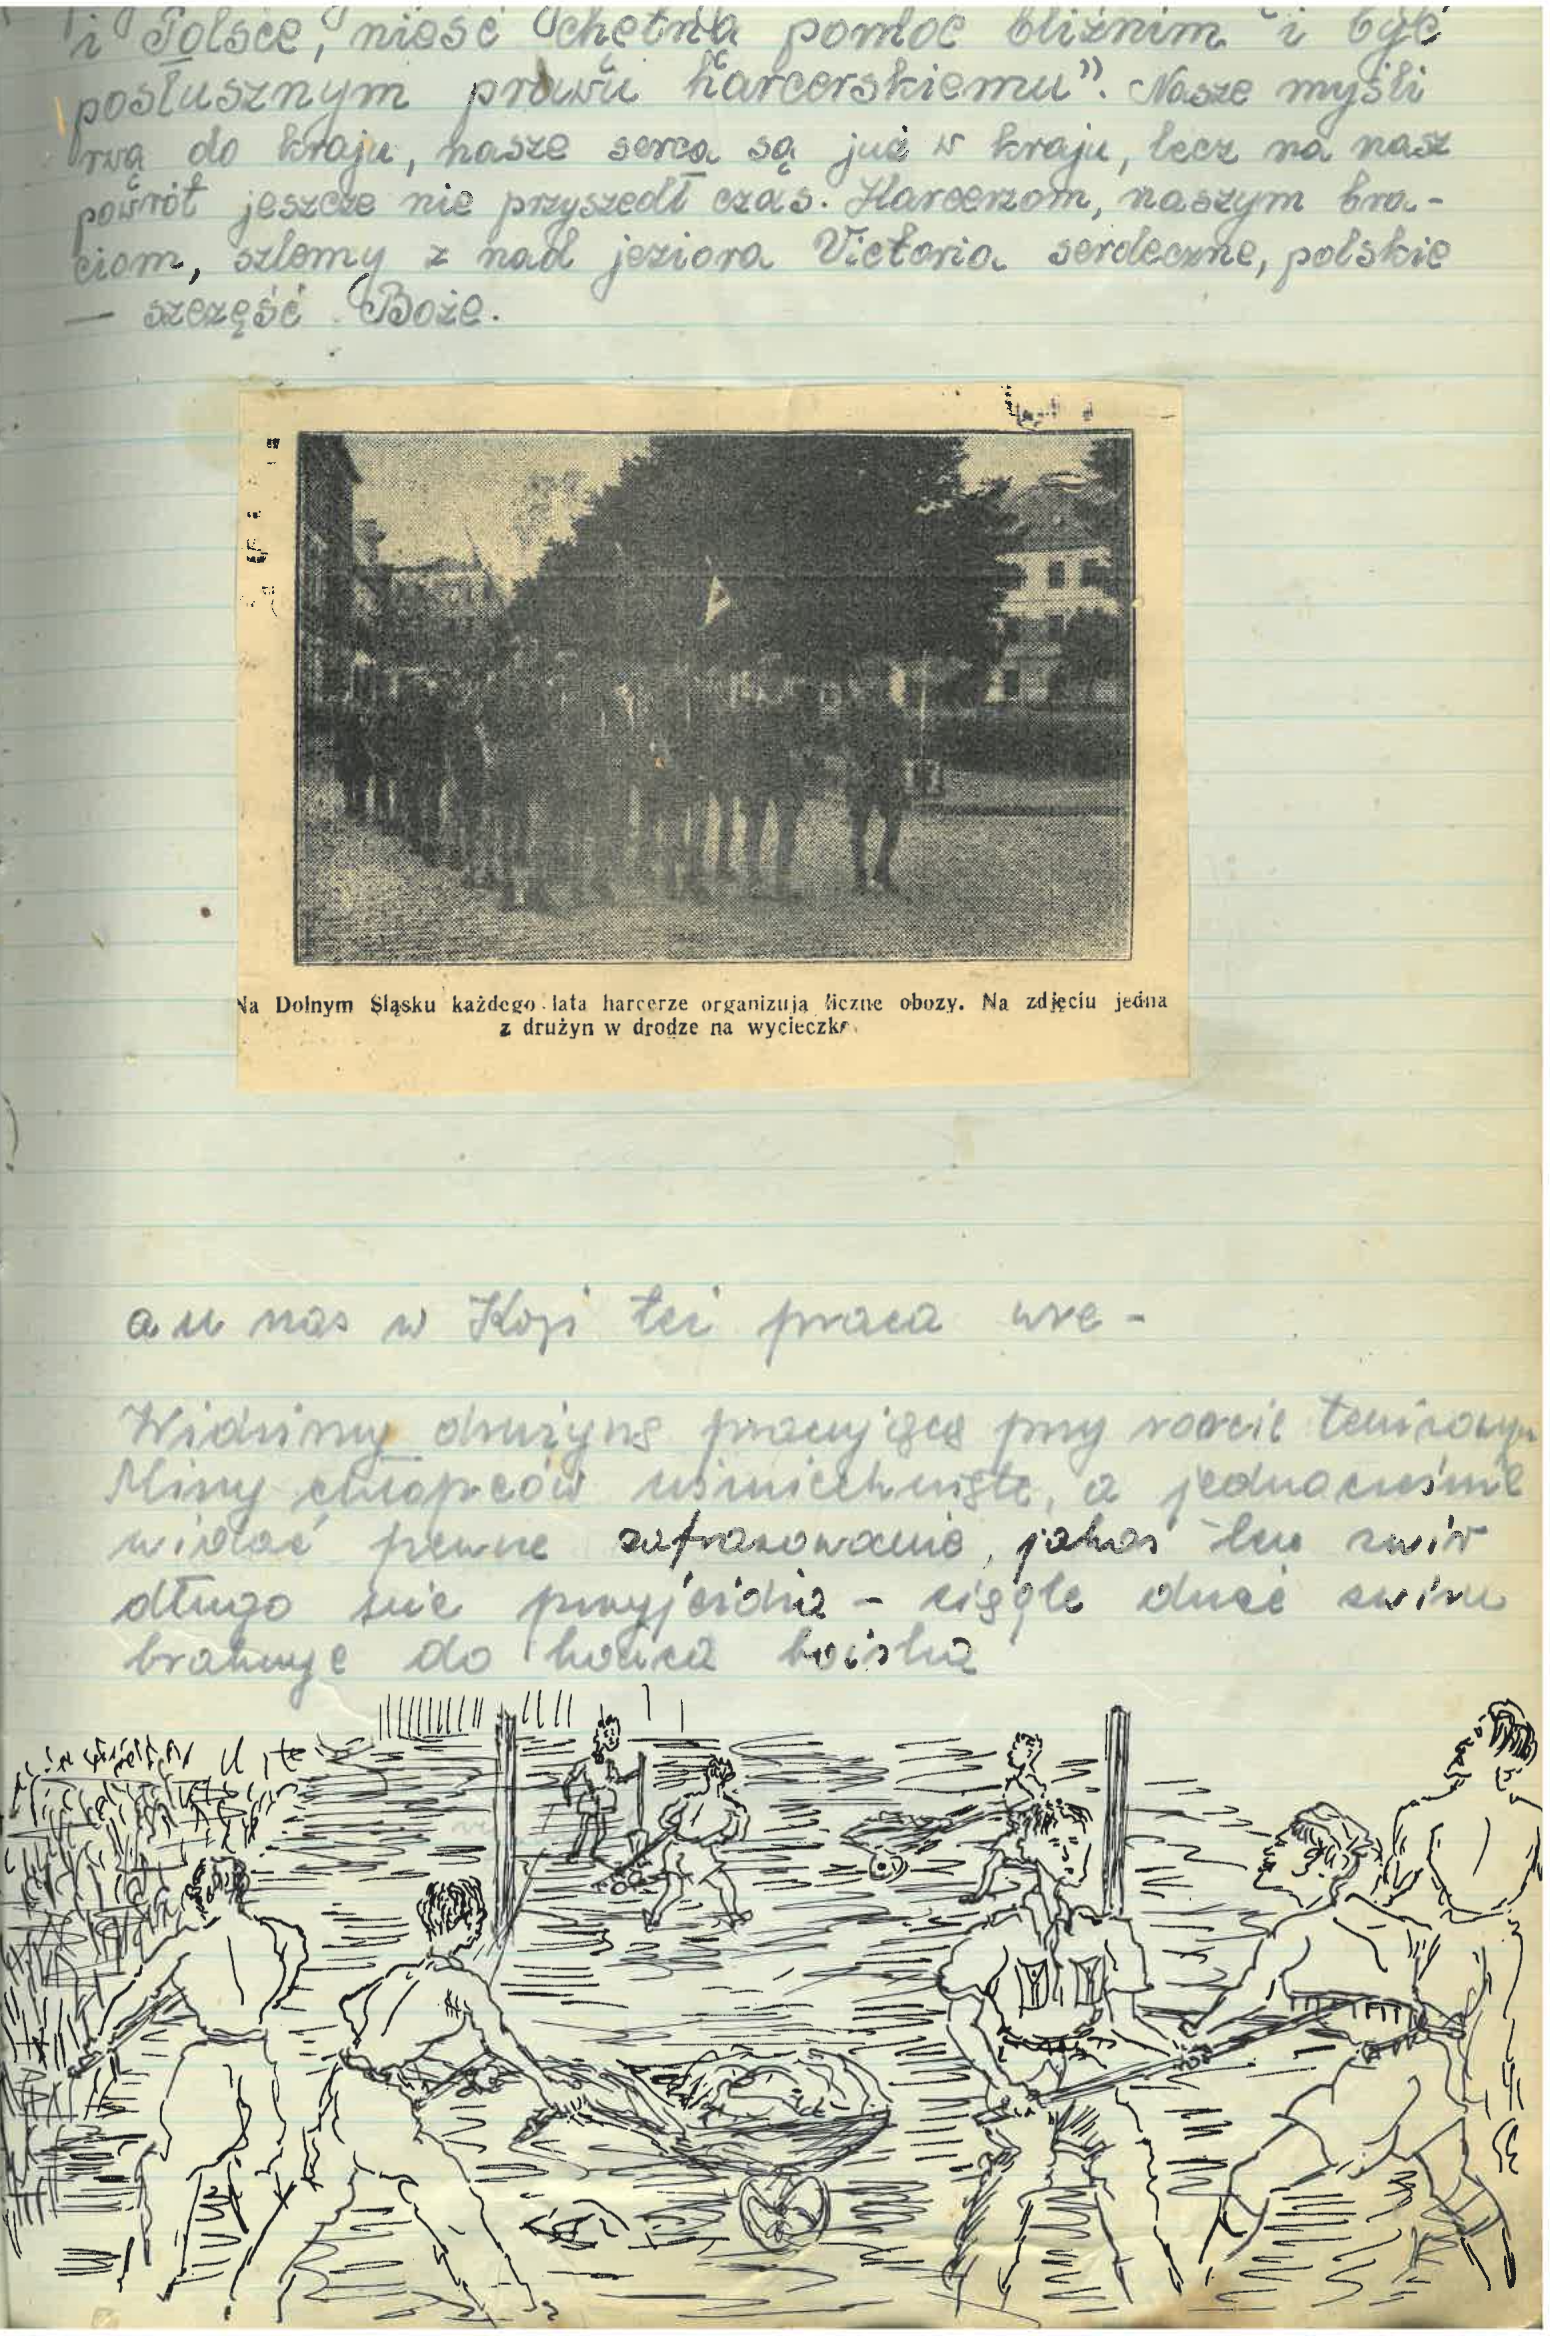 i Polsce, nieść chętną pomoc bliźnim i być
posłusznym prawu harcerskiemu”. Nasze myśli
rwą do kraju, nasze serca są już w kraju, lecz na nasz
powrót jeszcze nie przyszedł czas. Harcerzom, naszym bra-
ciom, szlemy z nad jeziora Victoria serdeczne, polskie
— szczęść Boże.
Na Dolnym Śląsku każdego lata harcerze organizują liczne obozy. Na zdjęciu jedna
z drużyn w drodze na wycieczkę.
a u nas w Koji też praca wre -
Widzimy drużynę pracującą przy korcie tenisowym
Miny chłopców uśmiechnięte, a jednocześnie
widać pewne zafrasowanie, jakoś ten żwir
długo nie przyjeżdża - ciągle dużo żwiru
brakuje do końca boiska